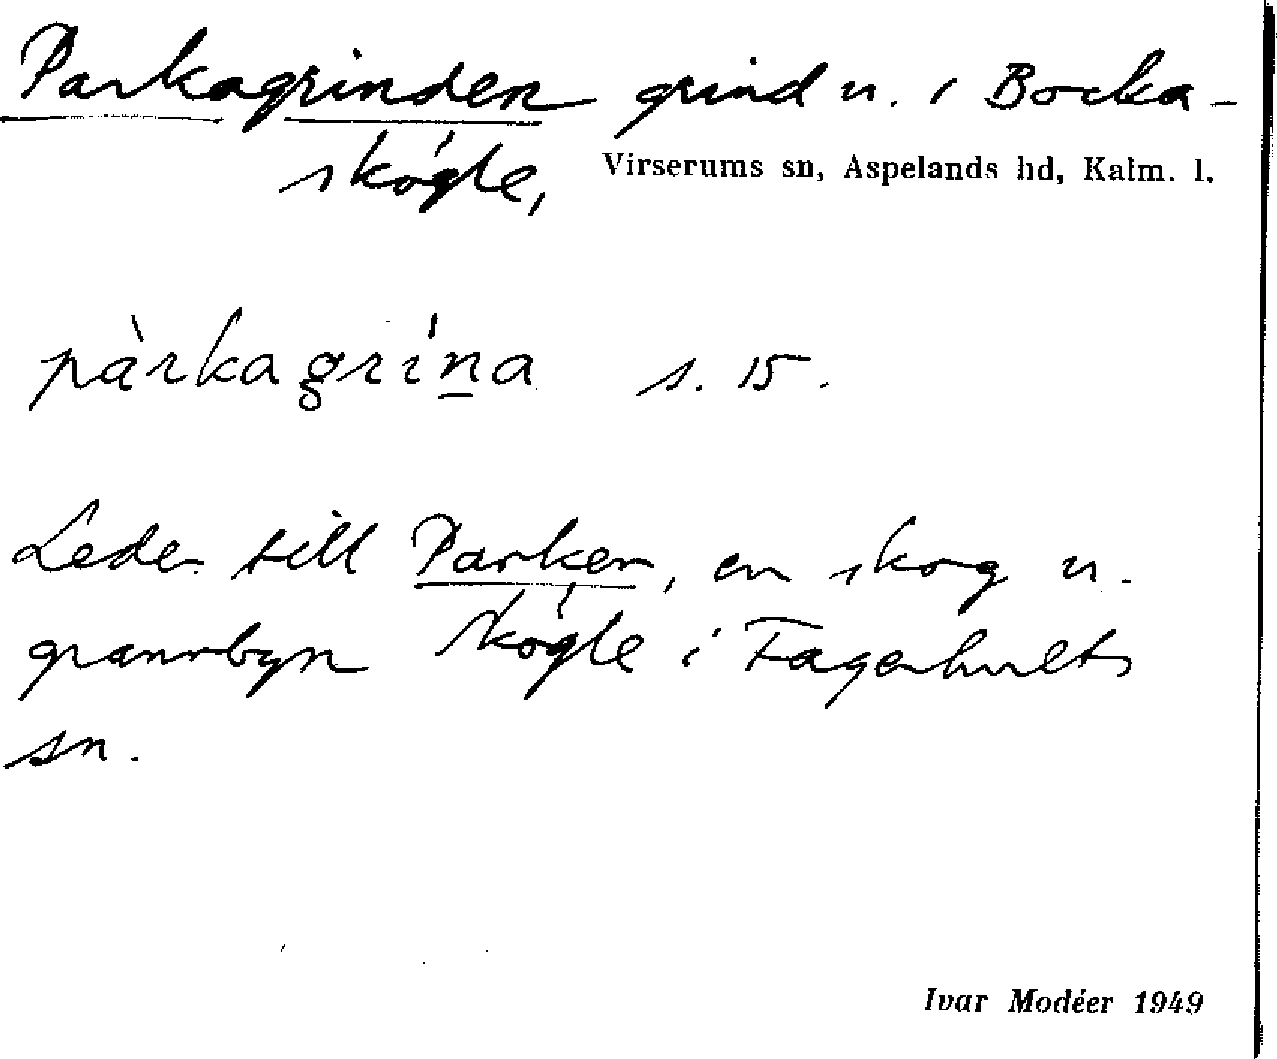 Parkagrinden grind n. i Bocka-
skógle,
Virserums sn, Aspelands hd, Kalm. l.
pàrkagrína s. 15.
Leder till Parken, en skog n.
grannbyn Skógle i Fagerhults
sn.
Ivar Modéer 1949